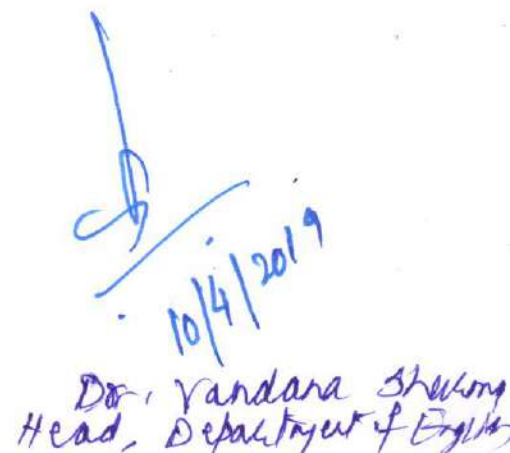 10/4/2019
Dr. Vandana
Head, Department of English